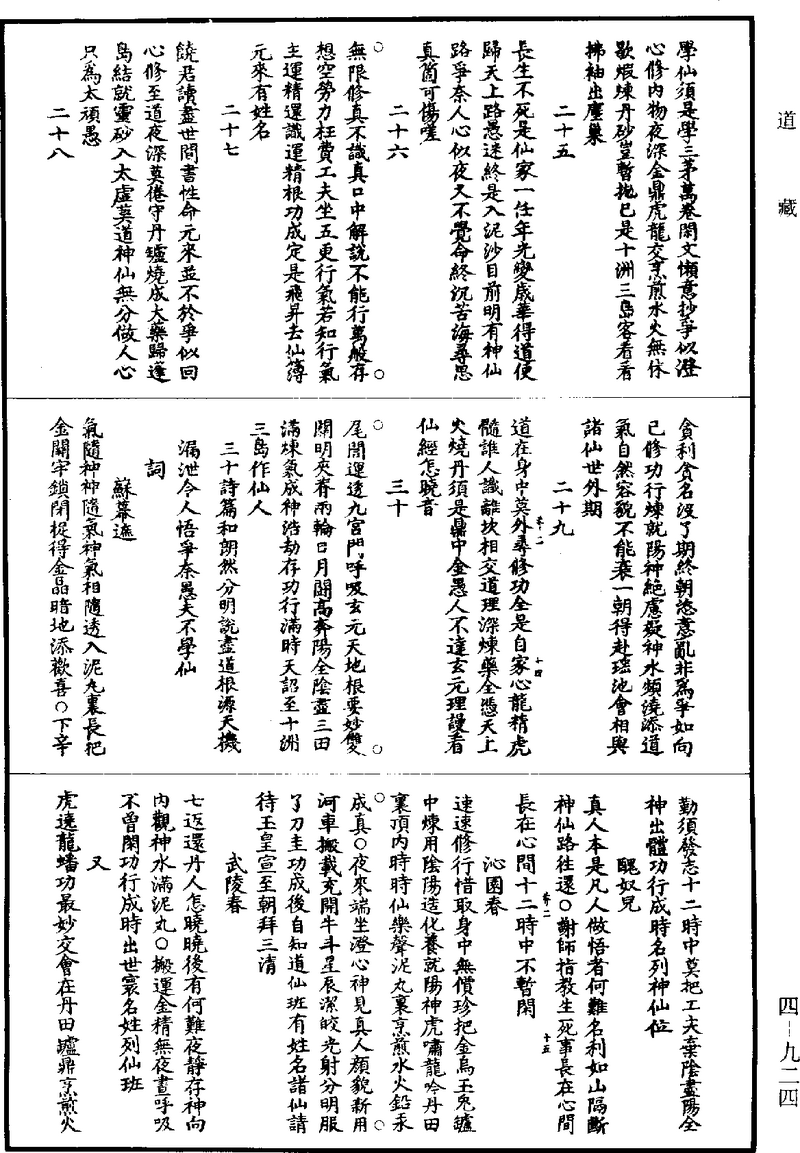 道藏
學仙須是學三茅萬卷閑文懶意抄爭似澄
心修內物夜深金鼎虎龍交烹煎水火無休
歇煆煉丹砂豈暫拋已是十洲三島客看看
拂袖出塵巢
二十五
長生不死是仙家一任年光變歲華得道便
歸天上路愚迷終是入泥沙目前明有神仙
路爭奈人心似夜叉不覺命終沉苦海尋思
真箇可傷嗟
二十六
無限修真不識真口中解說不能行萬般存
想空勞力枉費工夫坐五更行氣若知行氣
主運精還識運精根功成定是飛昇去仙簿
元來有姓名
二十七
饒君讀盡世間書性命元來並不於爭似回
心修至道夜深莫倦守丹爐燒成大藥歸蓬
島結就靈砂入太虛莫道神仙無分做人心
只為太頑愚
二十八
貪利貪名沒了期終朝恣意亂非爲爭如向
己修功行煉就陽神絕慮凝神水頻澆添道
氣自然容貌不能衰一朝得赴瑤池會相與
諸仙世外期
二十九
道在身中莫外尋修功全是自家心龍精虎
髓誰人識離坎相交道理深煉藥全憑天上
火燒丹須是鼎中金愚人不達玄元理謾看
仙經怎曉音
三十
尾閭運透九宮門呼吸玄元天地根要妙雙
關明夾脊兩輪日月鬪高奔陽全陰盡三田
滿煉氣成神浩劫存功行滿時天詔至十洲
三島作仙人
三十詩篇和朗然分明說盡道根源天機
漏泄令人悟爭奈愚夫不學仙
詞
蘇幕遮
氣隨神神隨氣神氣相隨透入泥丸裏長把
金關牢鎖閉捉得金晶暗地添歡喜○下辛
勤須發志十二時中莫把工夫棄陰盡陽全
神出體功行成時名列神仙位
醜奴兒
真人本是凡人做悟者何難名利如山隔斷
神仙路往還○謝師指教生死事長在心間
長在心間十二時中不暫閑
沁園春
速速修行惜取身中無價珍把金烏玉兔爐
中煉用陰陽造化養就陽神虎嘯龍吟丹田
裏頂內時時仙樂聲泥丸裏烹煎水火鉛汞
成真○夜來端坐澄心神見真人顏貌新用
河車搬載充開牛斗星辰潔皎光射分明服
了刀圭功成後自知道仙班有姓名諸仙請
待玉皇宣至朝拜三清
武陵春
七返還丹人怎曉曉後有何難夜靜存神向
內觀神水滿泥丸○搬運金精無夜晝呼吸
不曾閑功行成時出世寰名姓列仙班
又
虎遶龍蟠功最妙交會在丹田爐鼎烹煎火
四-九二四